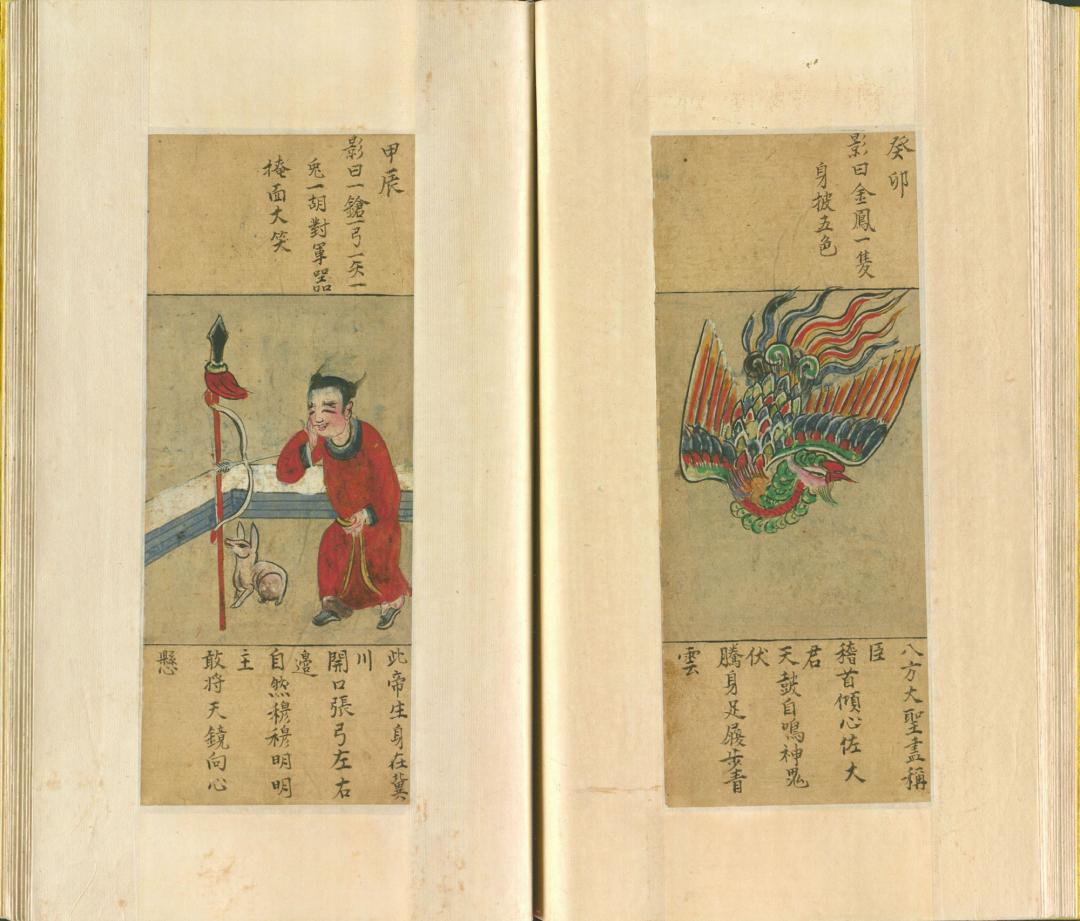 癸卯
影曰金鳳一隻
身披五色
八方大聖盡稱
臣
稽首傾心佐大
君
天鼓自鳴神鬼
伏
騰身足履步青
雲
甲辰
影曰一鎗一弓一矢一
兎一胡對軍器
掩面大笑
此帝生身在冀
川
開口張弓左右
邊
自然穆穆明明
主
敢將天鏡向心
懸